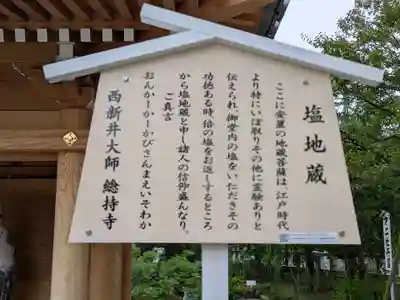 塩地蔵
ここに安置の地蔵菩薩は、江戸時代
より特にいぼ取りその他に霊験ありと
伝えられ、御堂内の塩をいただきその
功徳ある時、倍の塩をお返しするところ
から塩地蔵と申し諸人の信仰盛んなり。
ご真言
おんかーかーかびさんまえいそわか
西新井大師 總持寺